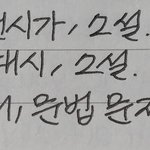 현시가, 소설.
대시, 소설.
, 문법 문